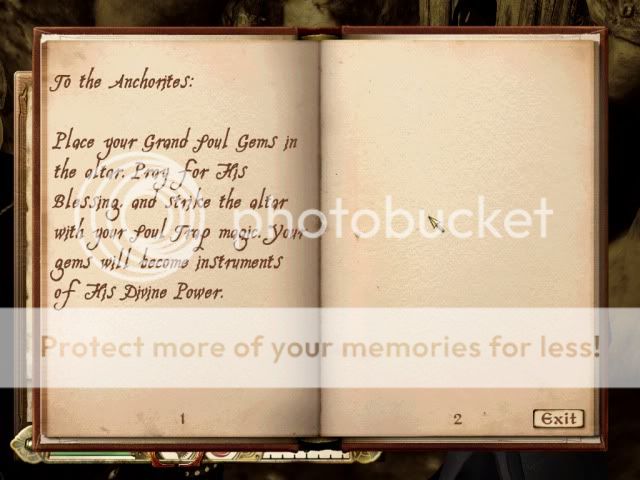 To the Anchorites:
Place your Grand Soul Gems in
the altar. Pray for His
Blessing, and strike the altar
with your Soul Trap magic. Your
gems will become instruments
of His Divine Power.
photobucket
Protect more of your memories for less!
1
2
Exit